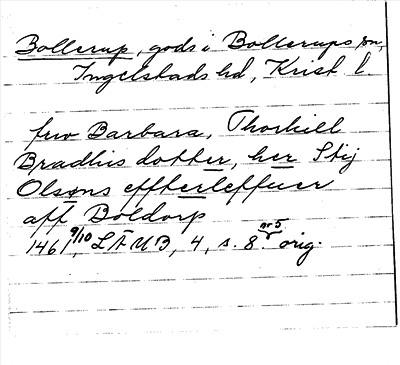 Bollerup, gods i Bollerups sn,
Ingelstads hd, Krist. l.
frw Barbara, Thorkill
Bradhis dotter, her Stij
Olsøns effterleffuer
aff Boldorp
1461 9/10, LÄUB, 4, s. 8. nr 5 orig.